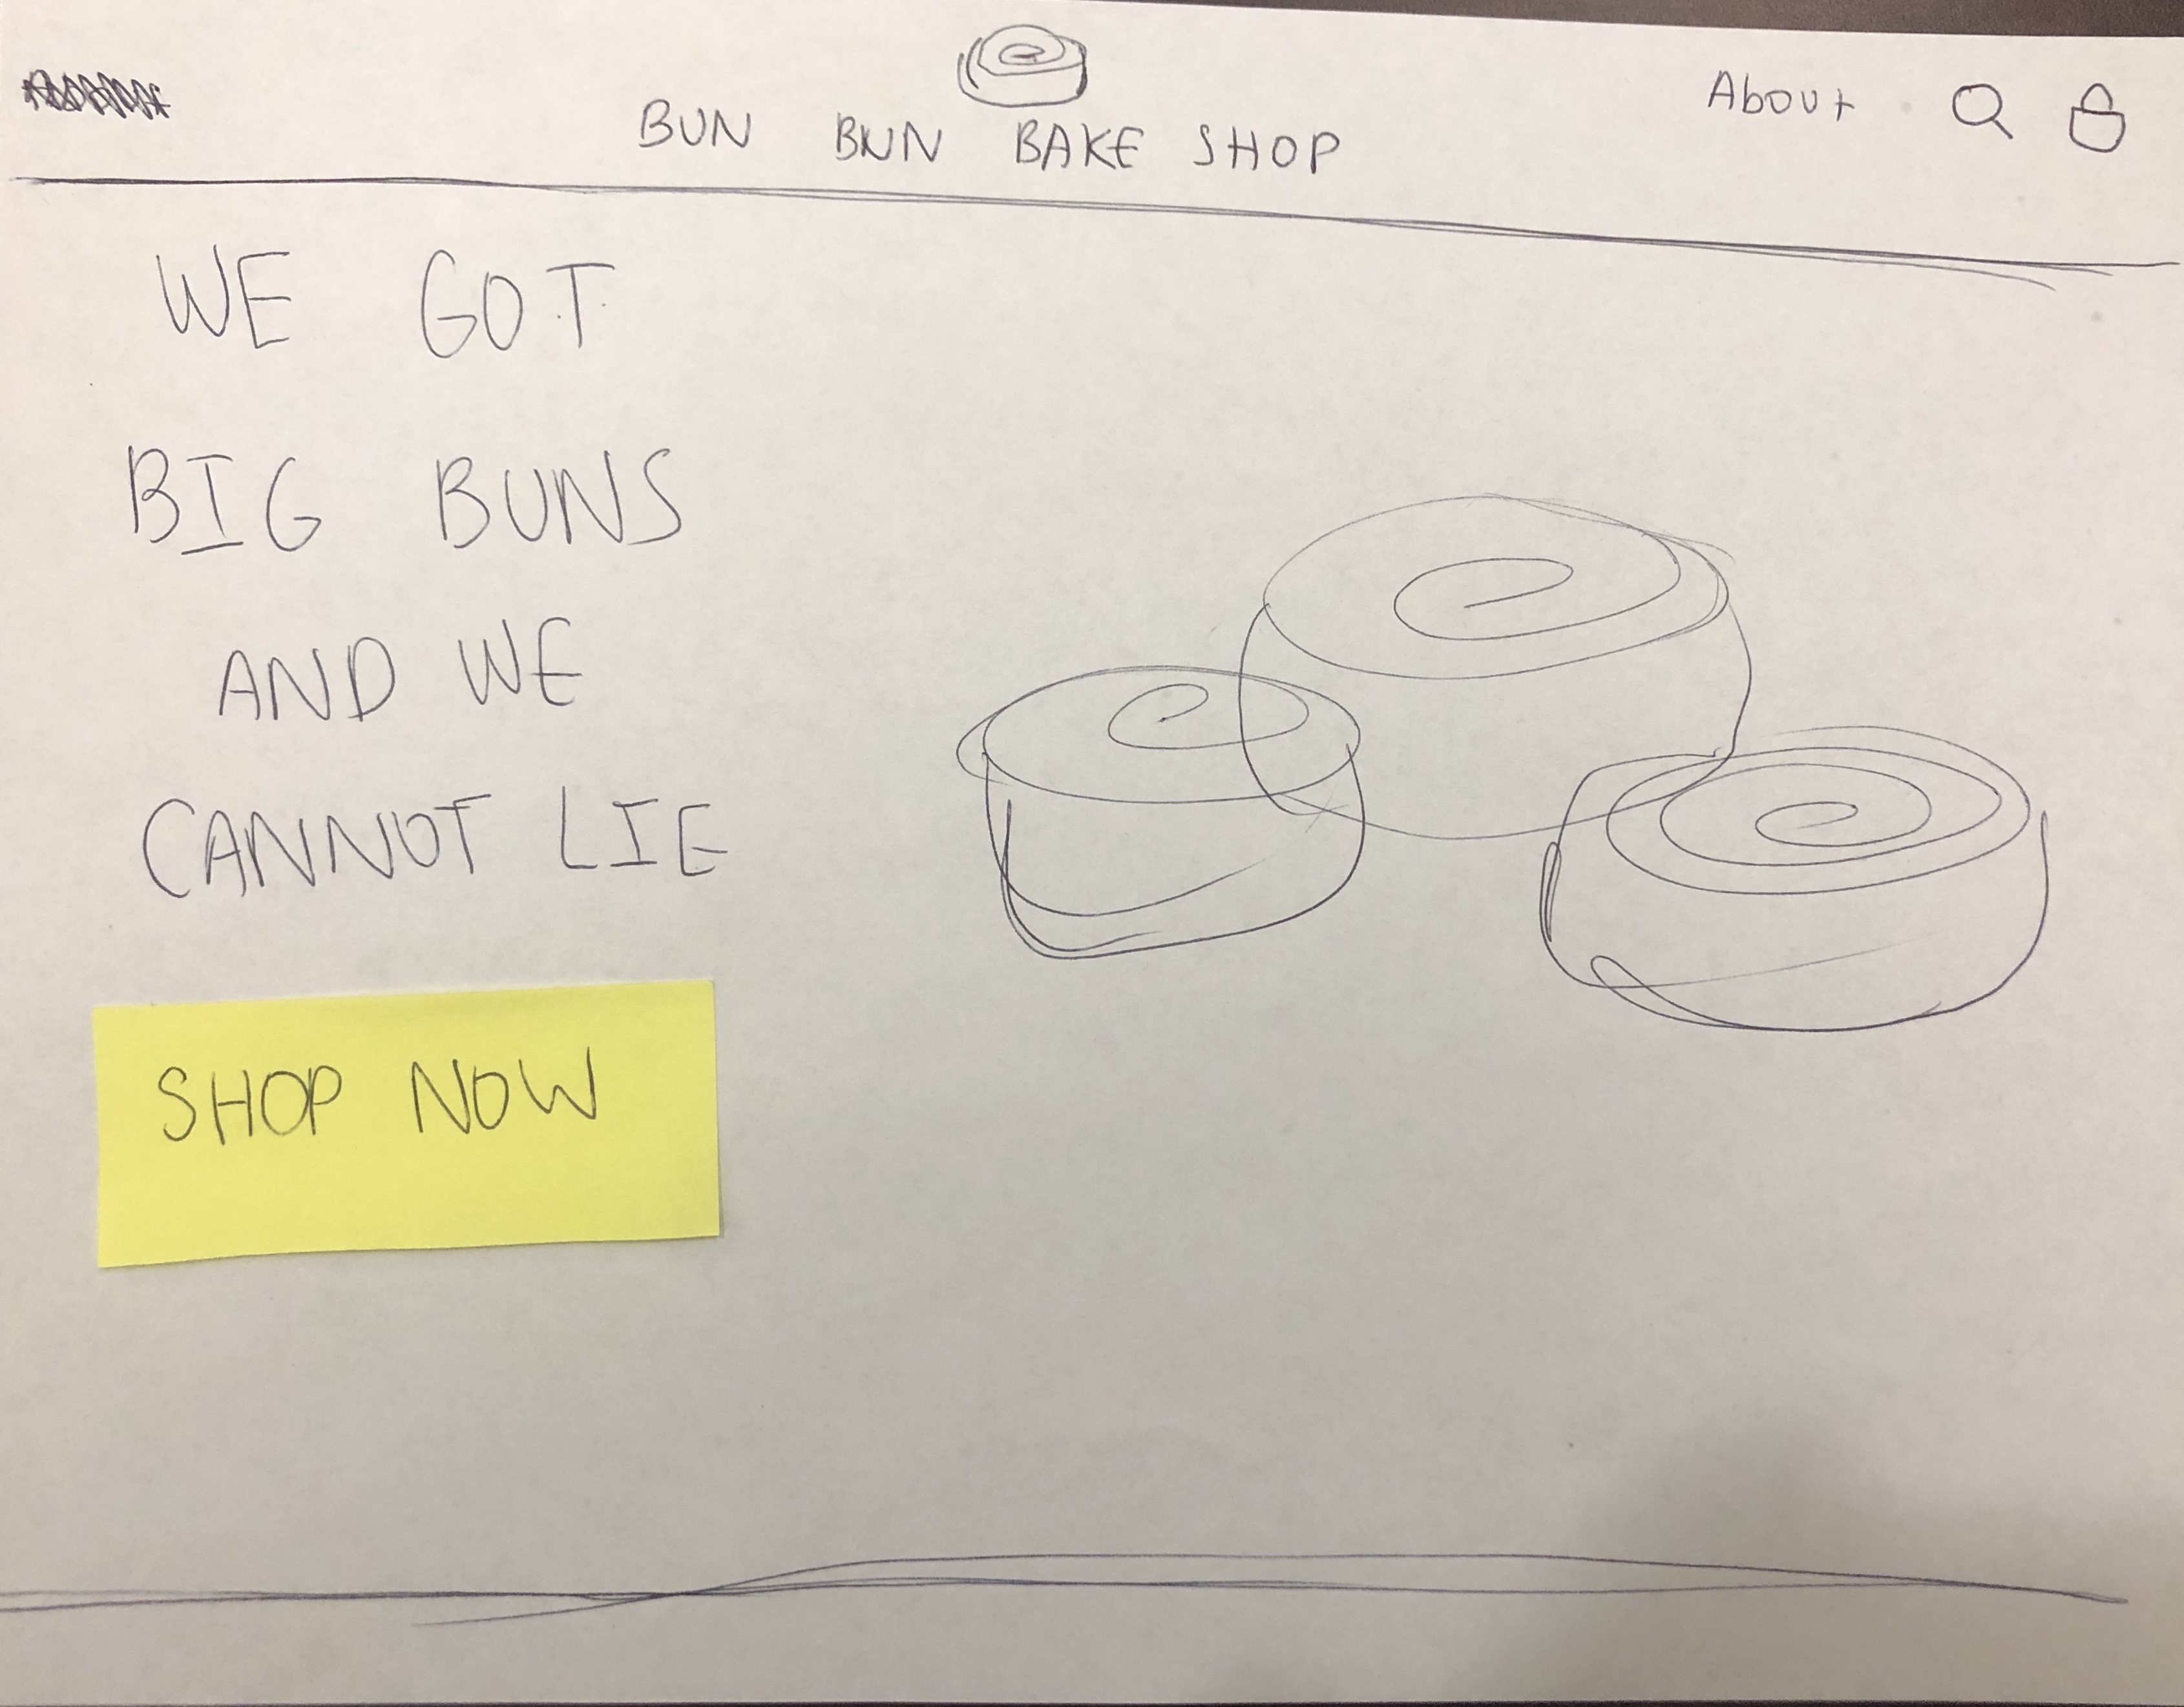 BUN BUN BAKE SHOP
About
WE GOT
BIG BUNS
AND WE
CANNOT LIE
SHOP NOW